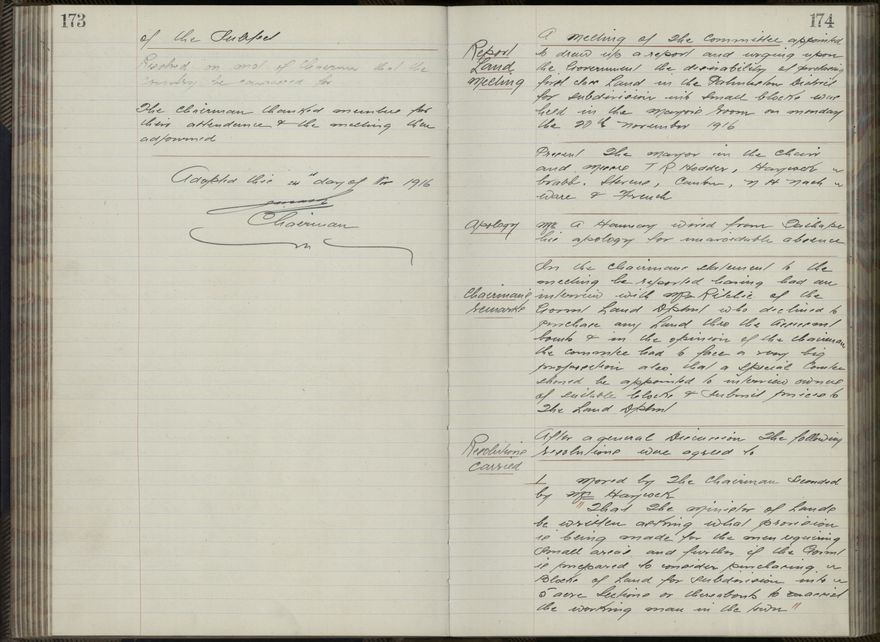 173
of the Subject
Resolved on mot of Chairman that the
Country be canvassed for
The Chairman thanked members for
their attendance & the meeting then
adjourned
Adopted this day of 1916
Chairman
174
Report
Land
Meeting
A meeting of the Committee appointed
to draw up a report and urging upon
the Government the desirability of purchasing
first class Land in the Palmerston District
for subdivision into small blocks was
held in the Mayors Room on monday
the 20th November 1916
Present The mayor in the Chair
and Messrs T R Hodder, Haycock
Crabb, Stevens, Canton, N H Nash
Ware & French
Apology
Mr A Hannay wired from Taihape
his apology for unavoidable absence
Chairmans
remarks
In the Chairmans statement to the
meeting he reported having had an
interview with Mr Ritchie of the
Govmt Land Dptmt who declined to
purchase any Land thro the
& in the opinion of the Chairman
the committee had to face a very big
proposition also that a special Comtee
should be appointed to interview owners
of suitable blocks & submit prices to
The Land Dptmt
Resolutions
carried
After a general Discussion The following
resolutions were agreed to
1 Moved by The Chairman Seconded
by Mr Haycock
"That The Minister of Lands
be written asking what provision
is being made for the men requiring
small areas and further if the Govmt
is prepared to consider purchasing
Blocks of Land for subdivision into
5 acre Sections or thereabouts to
the working man in the town"